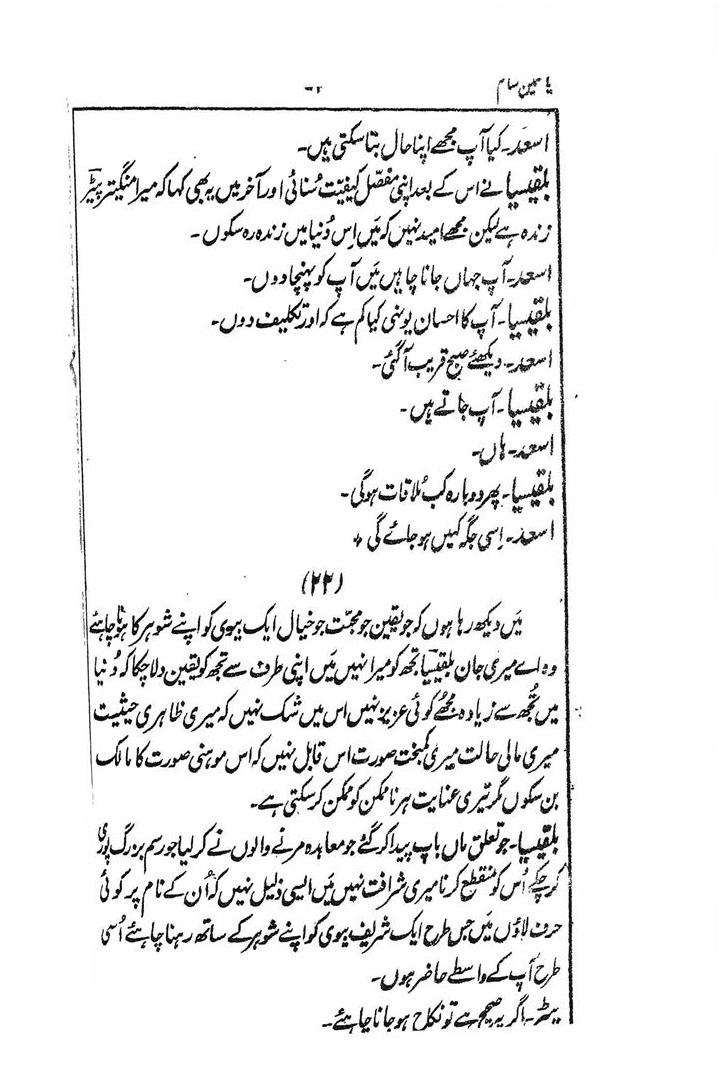 یاسمین شام
اسعد۔ کیا آپ مجھے اپنا حال بتا سکتی ہیں۔
بلقیسیا نے اس کے بعد اپنی مفصّل کیفیت سُنائی اور آخر میں یہ بھی کہا کہ میرا منگیتر پیٹر
زندہ ہے لیکن مجھے امید نہیں کہ مَیں اِس دُنیا میں زندہ رہ سکوں۔
اسعد۔ آپ جہاں جانا چاہیں مَیں آپ کو پہنچا دوں۔
بلقیسیا۔ آپ کا احسان یونہی کیا کم ہے کہ اور تکلیف دوں۔
اسعد۔ دیکھئے صبح قریب آ گئی۔
بلقیسیا۔ آپ جاتے ہیں۔
اسعد۔ ہاں۔
بلقیسیا۔ پھر دوبارہ کب مُلاقات ہو گی۔
اسعد۔ اِسی جگہ کہیں ہو جائے گی +
(۲۲)
مَیں دیکھ رہا ہوں کہ جو یقین جو محبّت جو خیال ایک بیوی کو اپنے شوہر کا ہونا چاہئے
وہ اے میری جان بلقیسیا تجھ کو میرا نہیں مَیں اپنی طرف سے تجھ کو یقین دلا چکا کہ دُنیا
میں تُجھ سے زیادہ مجھے کوئی عزیز نہیں اس میں شک نہیں کہ میری ظاہری حیثیت
میری مالی حالت میری کمبخت صورت اس قابل نہیں کہ اس موہنی صورت کا مالک
بن سکوں مگر تیری عنایت ہر ناممکن کو ممکن کر سکتی ہے۔
بلقیسیا۔ جو تعلق ماں باپ پیدا کر گئے جو معاہدہ مرنے والوں نے کر لیا جو رسم بزرگ پوری
کر چکے اُس کو منقطع کرنا میری شرافت نہیں مَیں ایسی ذلیل نہیں کہ اُن کے نام پر کوئی
حرف لاؤں مَیں جس طرح ایک شریف بیوی کو اپنے شوہر کے ساتھ رہنا چاہئے اُسی
طرح آپ کے واسطے حاضر ہوں۔
پیٹر۔ اگر یہ صحیح ہے تو نکاح ہو جانا چاہئے۔